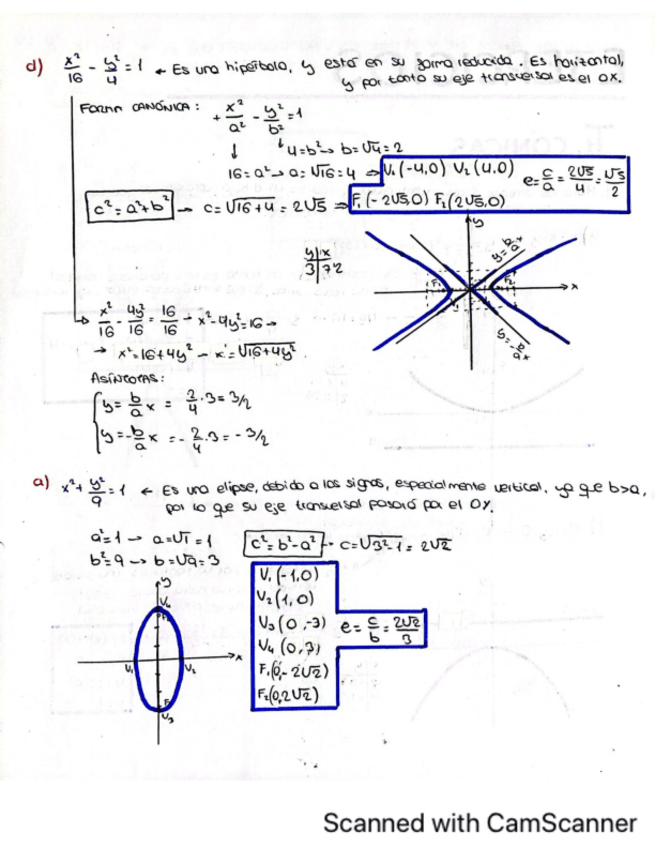 d) x²/16 - y²/4 = 1 ← Es una hipérbola, y está en su forma reducida. Es horizontal,
y por tanto su eje transversal es el OX.
FORMA CANÓNICA: + x²/a² - y²/b² = 1
↓ ↓ 4=b² → b=√4=2
16=a² → a=√16=4 ⇒ V₁(-4,0) V₂(4,0)
e = c/a = 2√5/4 = √5/2
c²=a²+b² → c=√16+4 = 2√5 ⇒ F₁(-2√5,0) F₂(2√5,0)
y
y|x
3|7'2
y = b/a x
F₁ F₂
x
y = -b/a x
x²/16 - 4y²/16 = 16/16 → x²-4y²=16 →
→ x²=16+4y² → x=√16+4y²
ASÍNTOTAS:
y = b/a x = 2/4 · 3 = 3/2
y = -b/a x = -2/4 · 3 = -3/2
a) x² + y²/9 = 1 ← Es una elipse, debido a los signos, especialmente vertical, ya que b>a,
por lo que su eje transversal pasará por el OY.
a²=1 → a=√1=1
b²=9 → b=√9=3
c²=b²-a² → c=√3²-1 = 2√2
V₁(-1,0)
V₂(1,0)
V₃(0,-3)
V₄(0,3)
F₁(0,-2√2)
F₂(0,2√2)
e = c/b = 2√2/3
y
V₄
V₁ V₂
x
F₁
V₃
Scanned with CamScanner